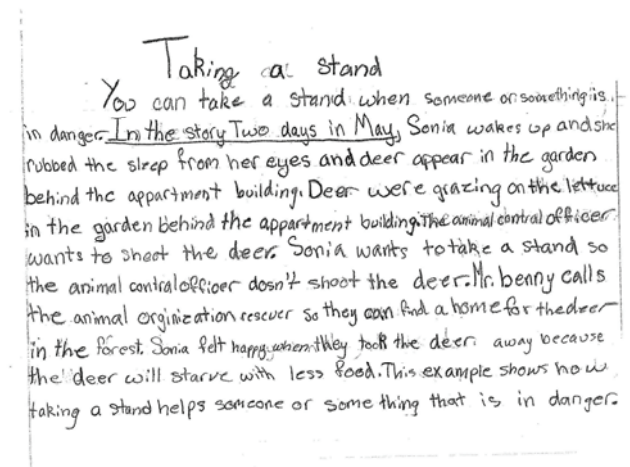 Taking a stand
You can take a stand when someone or something is
in danger. In the story Two days in May, Sonia wakes up and she
rubbed the sleep from her eyes and deer appear in the garden
behind the appartment building. Deer were grazing on the lettuce
in the garden behind the appartment building. The animal control officer
wants to shoot the deer. Sonia wants to take a stand so
the animal control officer dosn't shoot the deer. Mr. benny calls
the animal orginization rescuer so they can find a home for the deer
in the forest. Sonia felt happy when they took the deer away because
the deer will starve with less food. This example shows how
taking a stand helps someone or some thing that is in danger.